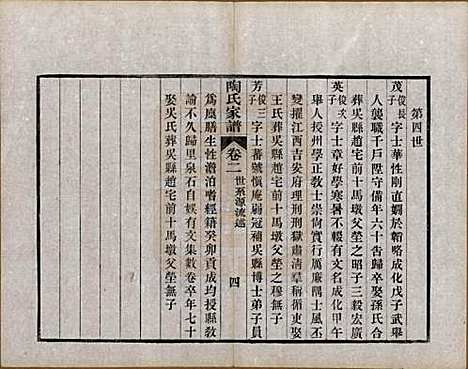 第四世
茂俊長子字士華性剛直嫻於韜略成化戊子武舉
人襲職千戶陞守備年六十告歸卒娶孫氏合
葬吳縣趙宅前十馬墩父塋之昭子三毅宏廣
英俊次子字士章好學寒暑不輟有文名成化甲午
舉人授州學正敎士崇尚實行厲廉隅士風丕
變擢江西吉安府理刑刑獄肅清羣稱循吏娶
王氏葬吳縣趙宅前十馬墩父塋之穆無子
陶氏家譜 卷二 世系源流述 四
芳俊三子字士蕃號愼庵弱冠補吳縣博士弟子員
爲廩膳生性澹泊嗜經籍癸卯貢成均授縣
丞不久歸里泉石自娛有文集數卷卒年七十
娶吳氏葬吳縣趙宅前十馬墩父塋無子